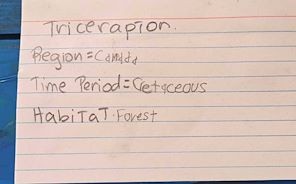 Triceraptor.
Region=Canada
Time Period=Cretaceous
Habitat.Forest